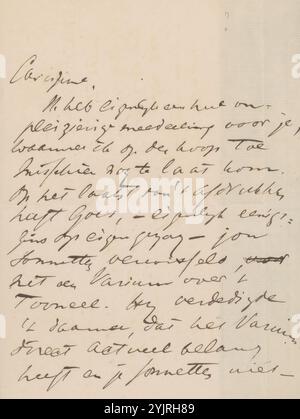 Carissime,
Ik heb eigenlijk een
pleizierige mededeeling voor je,
waarmee ik op den hoop toe
misschien nog te laat kom.
Op het laatst van 't afdrukken
heeft Goes, – eigenlijk eenigs-
zins op eigen gezag – jou
sonnetten verwisseld,
met een Varium over 't
Tooneel. Hij verdedigde
't daarmee, dat het Varium
direct actueel belang
heeft en je sonnetten niet –
alamy
Image ID: 2YJRH89
www.alamy.com